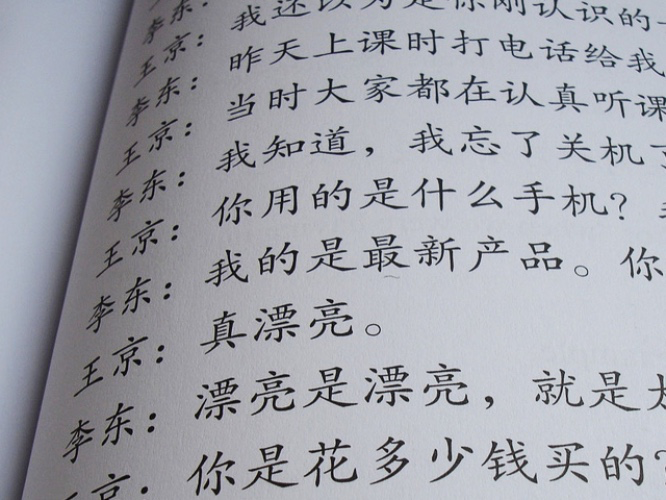 李东：
王京：我还以为是你刚认识的
李东：昨天上课时打电话给我
王京：当时大家都在认真听课
李东：我知道，我忘了关机了
王京：你用的是什么手机？
李东：我的是最新产品。你
王京：真漂亮。
李东：漂亮是漂亮，就是太
王京：你是花多少钱买的？